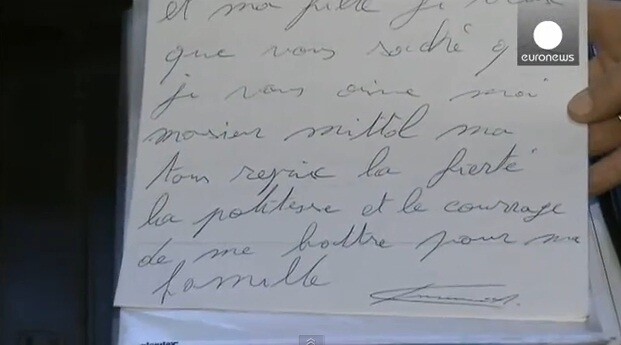 et ma fille je veux
que vous saché q
je vous aime moi
monsieur mittal ma
tous repris la fierté
la politesse et le courrage
de me battre pour ma
famille
euronews